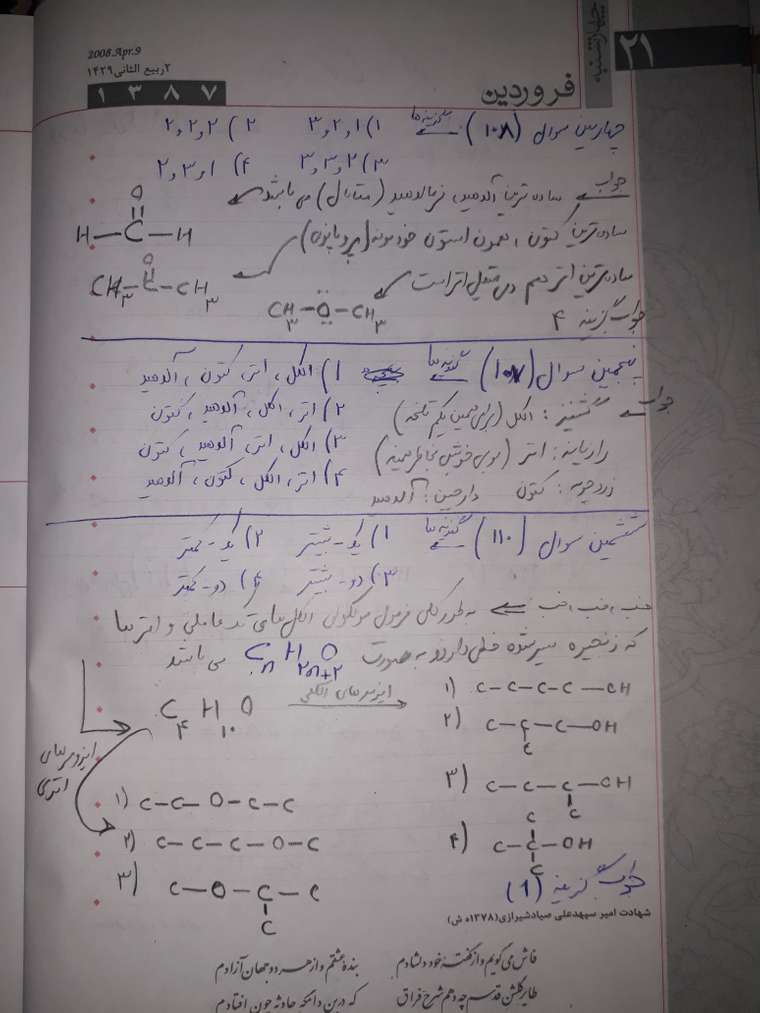 2008.Apr.9
۲ ربیع الثانی ۱۴۲۹
۱۳۸۷
فروردین
چهارشنبه
۲۱
چهارمین سوال (۱۰۸) گزینه ها ۱) ۳,۲,۱ ۲) ۲,۲,۲
۳) ۳,۳,۲ ۴) ۲,۳,۱
جواب ساده ترین آلدهید، فرمالدهید (متانال) می باشد
O
H–C–H
ساده ترین کتون، همون استون خودمونه (پروپانون)
O
CH3–C–CH3
ساده ترین اتر هم دی متیل اتر است
CH3–O–CH3
جواب گزینه ۴
پنجمین سوال (۱۰۷) گزینه ها ۱) الکل، اتر، کتون، آلدهید
۲) اتر، الکل، آلدهید، کتون
۳) الکل، اتر، آلدهید، کتون
۴) اتر، الکل، کتون، آلدهید
جواب گشنیز: الکل (برای همین یکم تلخه)
رازیانه: اتر (بوی خوش بخاطر همینه)
زردچوبه: کتون دارچین: آلدهید
ششمین سوال (۱۱۰) گزینه ها ۱) یک - بیشتر ۲) یک - کمتر
۳) دو - بیشتر ۴) دو - کمتر
به طور کلی فرمول مولکولی الکل های تک عاملی و اترها
که زنجیره سیر شده خطی دارند به صورت CnH2n+2O می باشد
C4H10O
ایزومرهای الکلی
۱) C–C–C–C–OH
۲) C–C–C–OH
C
۳) C–C–C–OH
C
۴) C
C–C–OH
C
ایزومرهای اتری
۱) C–C–O–C–C
۲) C–C–C–O–C
۳) C–O–C–C
C
جواب گزینه (۱)
شهادت امیر سپهبد علی صیاد شیرازی (۱۳۷۸ ه ش)
فاش می گویم و از گفته خود دلشادم بنده عشقم و از هر دو جهان آزادم
طایر گلشن قدسم چه دهم شرح فراق که درین دامگه حادثه چون افتادم